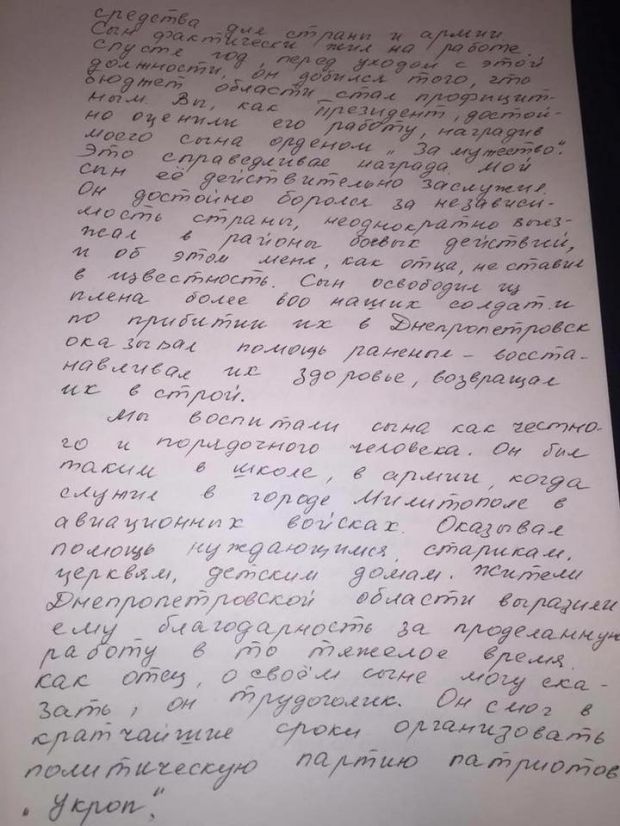 средства для страны и армии
Сын фактически жил на работе.
Спустя год, перед уходом с этой
должности, он добился того, что
бюджет области стал профицит-
ным. Вы, как Президент, достой-
но оценили его работу, наградив
моего сына орденом „За мужество".
Это справедливая награда. Мой
сын её действительно заслужил.
Он достойно боролся за независи-
мость страны, неоднократно выез-
жал в районы боевых действий,
и об этом меня, как отца, не ставил
в известность. Сын освободил из
плена более 600 наших солдат и
по прибитии их в Днепропетровск
оказывал помощь раненым – восста-
навливал их здоровье, возвращал
их в строй.
Мы воспитали сына как честно-
го и порядочного человека. Он был
таким в школе, в армии, когда
служил в городе Милитополе в
авиационных войсках. Оказывал
помощь нуждающимся, старикам,
церквям, детским домам. Жители
Днепропетровской области выразили
ему благодарность за проделанную
работу в то тяжелое время.
Как отец, о своём сыне могу ска-
зать, он трудоголик. Он смог в
кратчайшие сроки организовать
политическую партию патриотов
„Укроп".